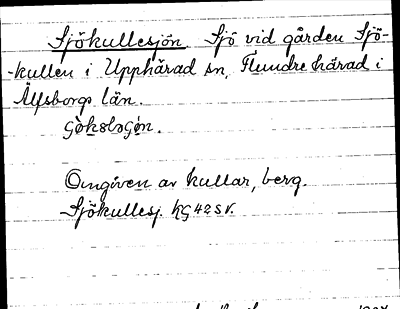 Sjökullesjön. Sjö vid gården Sjö-
-kullen i Upphärad sn, Flundre härad i
Älfsborgs län.
Omgiven av kullar, berg.
Sjökullesj. KG 42 SV.